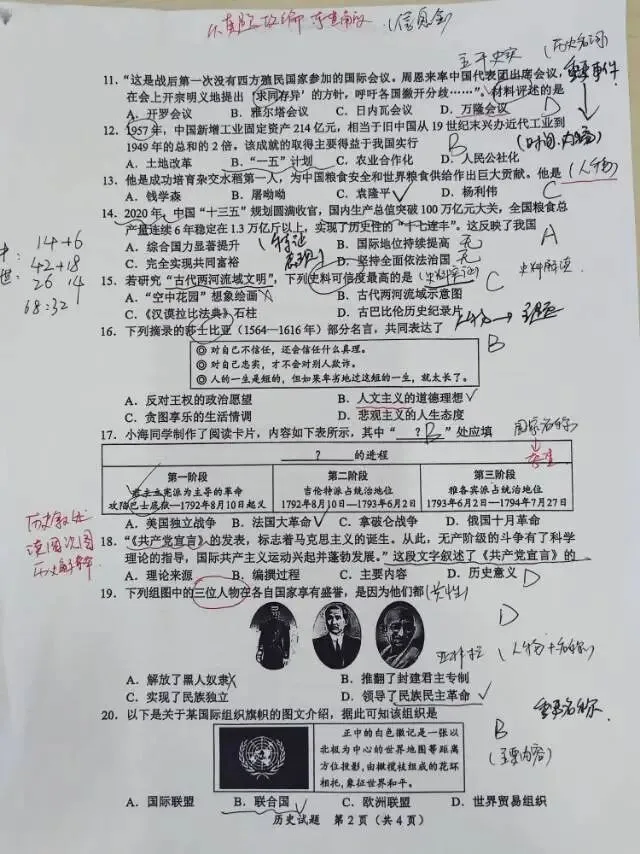 (信息会)
11. “这是战后第一次没有西方殖民国家参加的国际会议。周恩来率中国代表团出席会议,
在会上开宗明义地提出‘求同存异’的方针,呼吁各国撇开分歧……”。材料评述的是
A. 开罗会议 B. 雅尔塔会议 C. 日内瓦会议 D. 万隆会议
D
(历史名词)
12. 1957年,中国新增工业固定资产214亿元,相当于旧中国从19世纪末兴办近代工业到
1949年的总和的2倍。该成就的取得主要得益于我国实行
A. 土地改革 B. “一五”计划 C. 农业合作化 D. 人民公社化
B
13. 他是成功培育杂交水稻第一人,为中国粮食安全和世界粮食供给作出巨大贡献。他是
A. 钱学森 B. 屠呦呦 C. 袁隆平 D. 杨利伟
C
(人物)
14. 2020年,中国“十三五”规划圆满收官,国内生产总值突破100万亿元大关,全国粮食总
产量连续6年稳定在1.3万亿斤以上,实现了历史性的“十七连丰”。这反映了我国
A. 综合国力显著提升 B. 国际地位持续提高
C. 完全实现共同富裕 D. 坚持全面依法治国
A
14+6
42+18
26 14
68:32
15. 若研究“古代两河流域文明”,下列史料可信度最高的是
A. “空中花园”想象绘画 B. 古代两河流域示意图
C. 《汉谟拉比法典》石柱 D. 古巴比伦历史纪录片
C
史料解读
16. 下列摘录的莎士比亚(1564—1616年)部分名言,共同表达了
人物→主题
B
◎ 对自己不信任,还会信任什么真理。
◎ 对自己忠实,才不会对别人欺诈。
◎ 人的一生是短的,但如果卑劣地过这短的一生,就太长了。
A. 反对王权的政治愿望 B. 人文主义的道德理想
C. 贪图享乐的生活情调 D. 悲观主义的人生态度
17. 小海同学制作了阅读卡片,内容如下表所示,其中“ ? ”处应填
B
? 的进程
第一阶段 第二阶段 第三阶段
君主立宪派为主导的革命 吉伦特派占统治地位 雅各宾派占统治地位
攻陷巴士底狱—1792年8月10日起义 1792年8月10日—1793年6月2日 1793年6月2日—1794年7月27日
A. 美国独立战争 B. 法国大革命 C. 拿破仑战争 D. 俄国十月革命
18. “《共产党宣言》的发表,标志着马克思主义的诞生。从此,无产阶级的斗争有了科学
理论的指导,国际共产主义运动兴起并蓬勃发展。”这段文字叙述了《共产党宣言》的
A. 理论来源 B. 编撰过程 C. 主要内容 D. 历史意义
D
19. 下列组图中的三位人物在各自国家享有盛誉,是因为他们都
(共性)
D
A. 解放了黑人奴隶 B. 推翻了封建君主专制
C. 实现了民族独立 D. 领导了民族民主革命
20. 以下是关于某国际组织旗帜的图文介绍,据此可知该组织是
B
(主要内容)
正中的白色徽记是一张以
北极为中心的世界地图等距离
方位投影,由橄榄枝组成的花环
相托,象征世界和平。
A. 国际联盟 B. 联合国 C. 欧洲联盟 D. 世界贸易组织
历史试题 第2页(共4页)